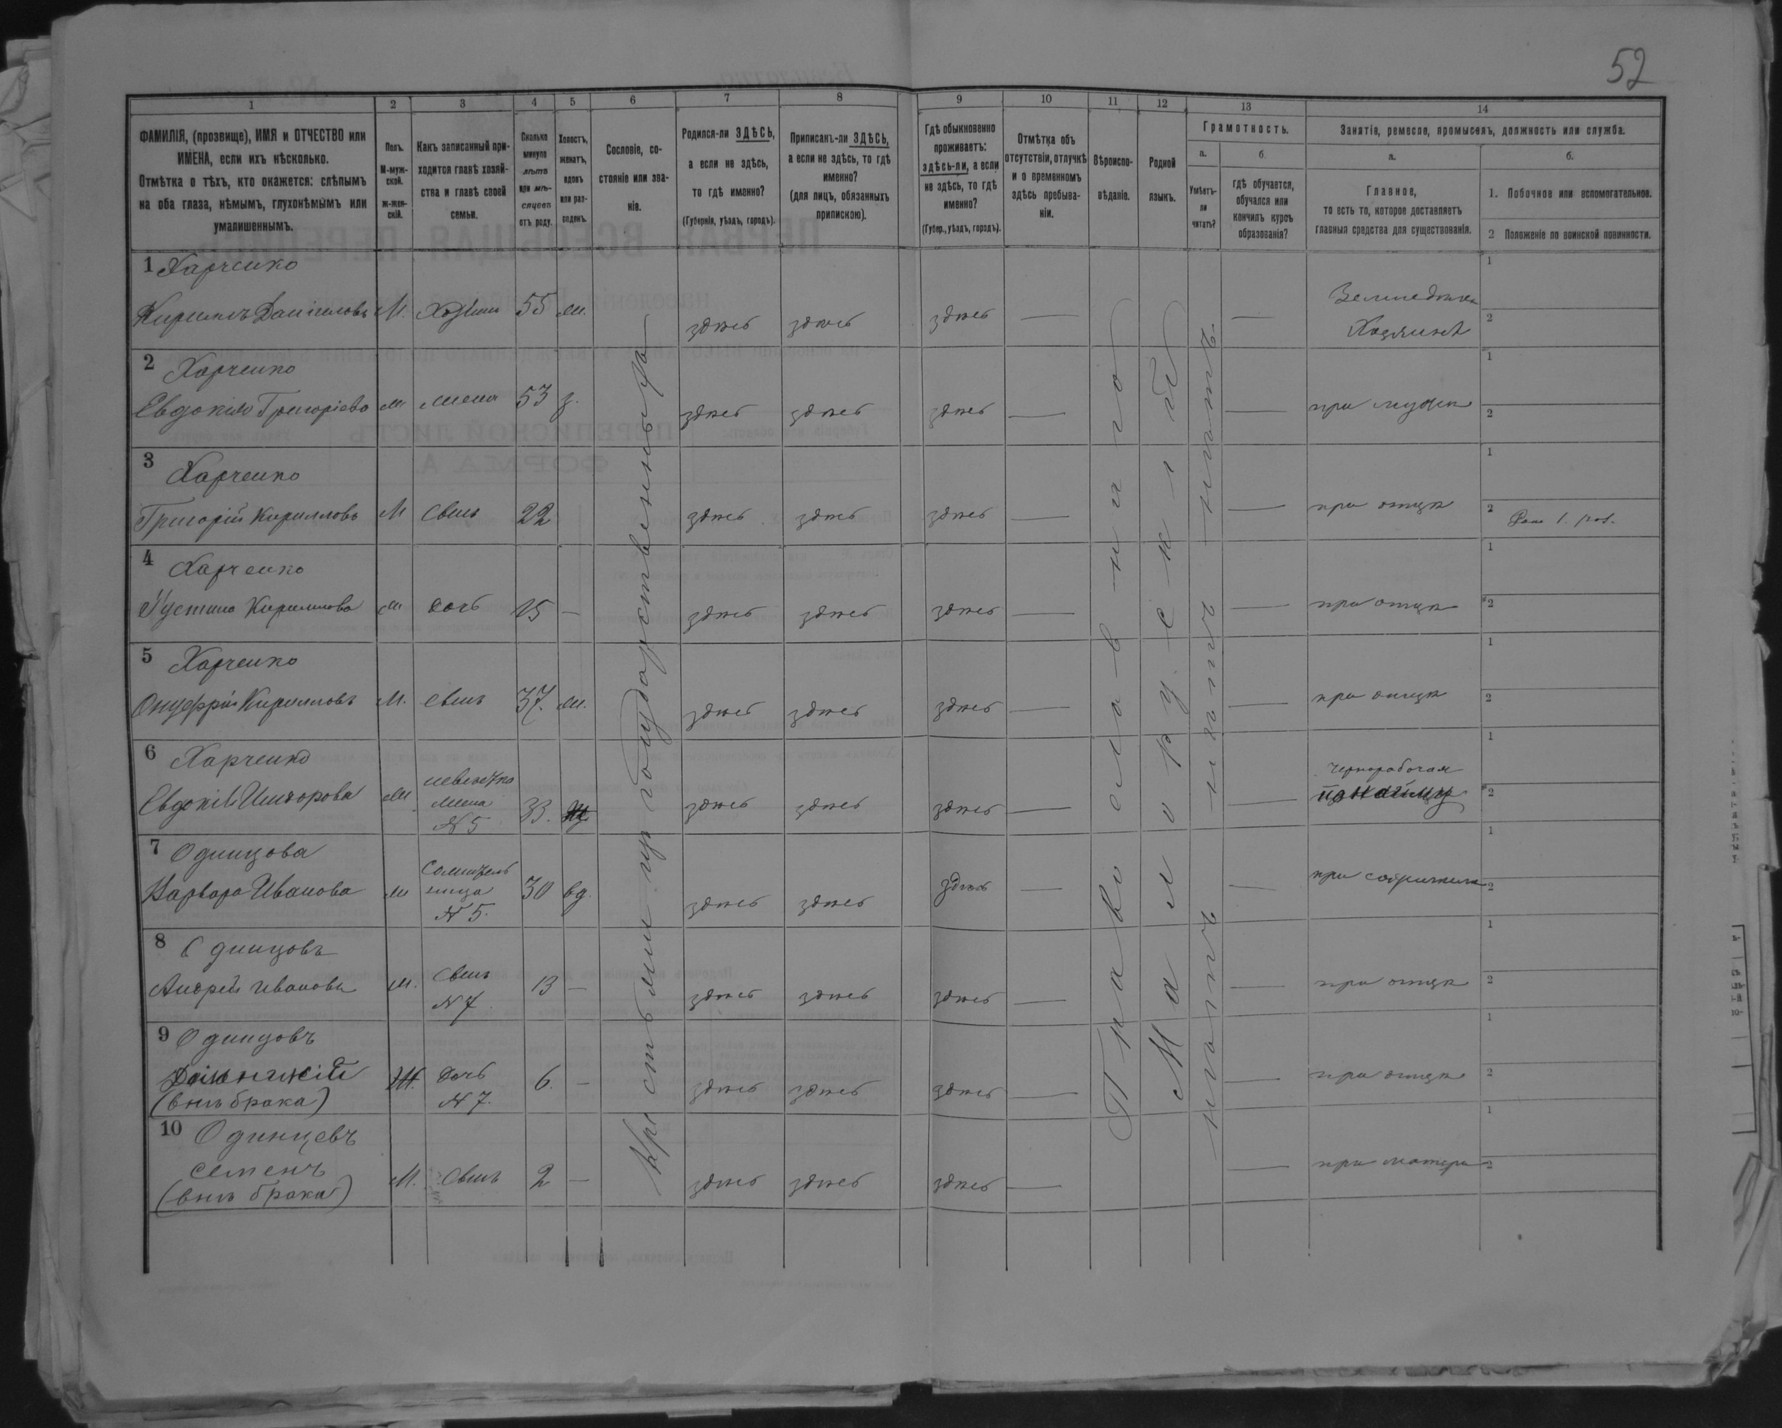 52
1 2 3 4 5 6 7 8 9 10 11 12 13 14
ФАМИЛІЯ, (прозвище), ИМЯ и ОТЧЕСТВО или
ИМЕНА, если ихъ нѣсколько.
Отмѣтка о тѣхъ, кто окажется: слѣпымъ
на оба глаза, нѣмымъ, глухонѣмымъ или
умалишеннымъ.
Полъ.
М-муж-
ской.
ж-жен-
скій.
Какъ записанный при-
ходится главѣ хозяй-
ства и главѣ своей
семьи.
Сколько
минуло
лѣтъ
или мѣ-
сяцевъ
отъ роду.
Холостъ,
женатъ,
вдовъ
или раз-
веденъ.
Сословіе, со-
стояніе или зва-
ніе.
Родился-ли ЗДѢСЬ,
а если не здѣсь,
то гдѣ именно?
(Губернія, уѣздъ, городъ).
Приписанъ-ли ЗДѢСЬ,
а если не здѣсь, то гдѣ
именно?
(для лицъ, обязанныхъ
припискою).
Гдѣ обыкновенно
проживаетъ:
здѣсь-ли, а если
не здѣсь, то гдѣ
именно?
(Губер., уѣздъ, городъ).
Отмѣтка объ
отсутствіи, отлучкѣ
и о временномъ
здѣсь пребыва-
ніи.
Вѣроиспо-
вѣданіе.
Родной
языкъ.
Грамотность.
а.
Умѣетъ-
ли
читать?
б.
гдѣ обучается,
обучался или
кончилъ курсъ
образованія?
Занятіе, ремесло, промыселъ, должность или служба.
а.
Главное,
то есть то, которое доставляетъ
главныя средства для существованія.
б.
1. Побочное или вспомогательное.
2 Положеніе по воинской повинности.
1 Харченко
Кириллъ Даніиловъ М. Хозяинъ 55 ж. здѣсь здѣсь здѣсь —
Хозяинъ
2 Харченко
Евдокія Григоріева ж жена 53 з. здѣсь здѣсь здѣсь — при мужѣ
3 Харченко
Григорій Кирилловъ М сынъ 22 здѣсь здѣсь здѣсь — при отцѣ
4 Харченко
Устина Кириллова ж дочь 15 — здѣсь здѣсь здѣсь — при отцѣ
5 Харченко
Онуфрій Кирилловъ М. сынъ 37. ж. здѣсь здѣсь здѣсь — при отцѣ
6 Харченко
невестка
жена
N 5
33.
здѣсь здѣсь здѣсь —
7 Одинцова
Варвара Иванова ж
N 5.
30 вд. здѣсь здѣсь здѣсь —
8 Одинцовъ
Андрей Ивановъ М. сынъ
N 7
13 — здѣсь здѣсь здѣсь — при отцѣ
9 Одинцовъ
(внѣ брака)
Ж. дочь
N 7.
6. — здѣсь здѣсь здѣсь — при отцѣ
10 Одинцевъ
Семенъ
(внѣ брака)
М. сынъ 2 — здѣсь здѣсь здѣсь — при матери
Православнаго
Малорускій